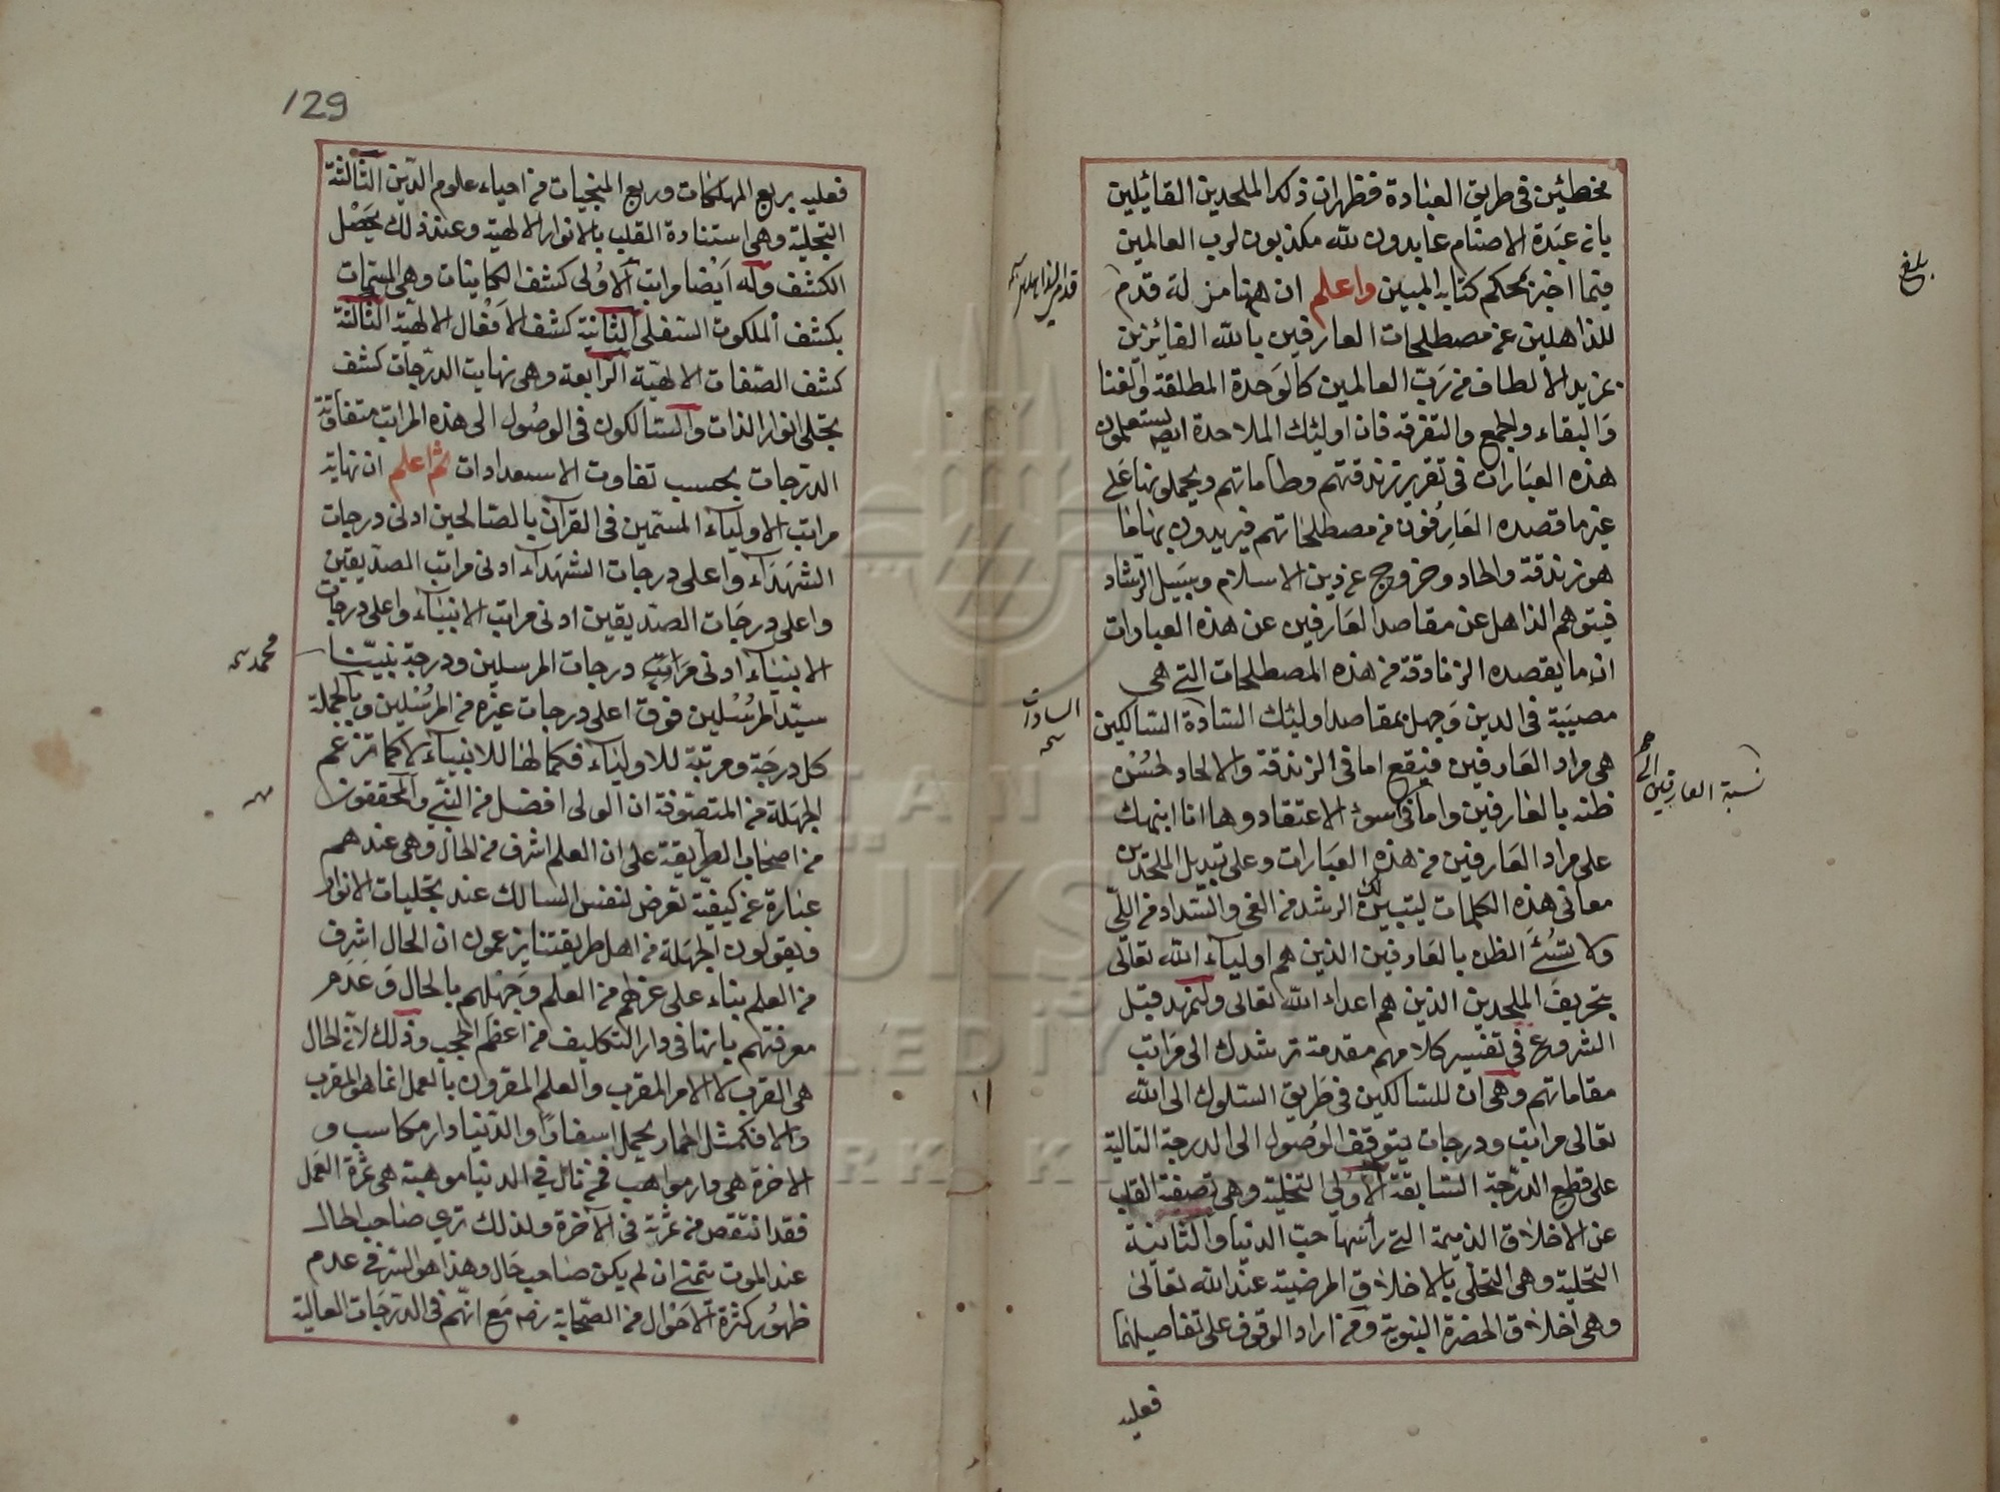 مخطئين في طريق العبادة فظهر ان ذلك الملحدين القائلين
بان عبدة الاصنام عابدون لله مكذبون لرب العالمين
فيما اخبر بمحكم كتابه المبين واعلم ان ههنا مزلة قدم
للذاهلين عن مصطلحات العارفين بالله الفائزين
بمزيد الالطاف من رب العالمين كالوحدة المطلقة والفنا
والبقاء والجمع والتفرقة فان اولئك الملاحدة ايضا يستعملون
هذه العبارات في تقرير زندقتهم وطاماتهم ويحملونها على
غير ما قصده العارفون من مصطلحاتهم فيريدون بها ما
هو زندقة والحاد وخروج عن دين الاسلام وسبيل الرشاد
فيتوهم الذاهل عن مقاصد العارفين عن هذه العبارات
ان ما يقصده الزنادقة من هذه المصطلحات التي هي
مصيبة في الدين وجهل بمقاصد اولئك السادة السالكين
هي مراد العارفين فيقع اما في الزندقة والالحاد لحسن
ظنه بالعارفين واما في سوء الاعتقاد وها انا انبهك
على مراد العارفين من هذه العبارات وعلى تبديل الملحدين
معاني هذه الكلمات ليتبين لك الرشد من الغي والسداد من اللي
ولا تسئ الظن بالعارفين الذين هم اولياء الله تعالى
بتحريف الملحدين الذين هم اعداء الله تعالى ولنمهد قبل
الشروع في تفسير كلامهم مقدمة ترشدك الى مراتب
مقاماتهم وهي ان للسالكين في طريق السلوك الى الله
تعالى مراتب ودرجات يتوقف الوصول الى الدرجة التالية
على قطع الدرجة السابقة الاولى التخلية وهي تصفية القلب
عن الاخلاق الذميمة التي رأسها حب الدنيا والثانية
التحلية وهي التحلي بالاخلاق المرضية عند الله تعالى
وهي اخلاق الحضرة النبوية ومن اراد الوقوف على تفاصيلها
فعليه
بلغ
السادات
نسبة العارفين الى
129
فعليه بربع المهلكات وربع المنجيات من احياء علوم الدين الثالثة
التجلية وهي استنارة القلب بالانوار الالهية وعند ذلك يحصل
الكشف وله ايضا مراتب الاولى كشف الكاينات وهي المسمات
بكشف الملكوت السفلى الثانية كشف الافعال الالهية الثالثة
كشف الصفات الالهية الرابعة وهي نهايت الدرجات كشف
تجلى انوار الذات والسالكون في الوصول الى هذه المراتب متفاوتة
الدرجات بحسب تفاوت الاستعدادات ثم اعلم ان نهاية
مراتب الاولياء المسمين في القرآن بالصالحين ادنى درجات
الشهداء واعلى درجات الشهداء ادنى مراتب الصديقين
واعلى درجات الصديقين ادنى مراتب الانبياء واعلى درجات
الانبياء ادنى مراتب درجات المرسلين ودرجة نبينا
سيد المرسلين فوق اعلى درجات غيره من المرسلين وبالجملة
كل درجة ومرتبة للاولياء فكمالها للانبياء لا كما تزعم
الجهلة من المتصوفة ان الولي افضل من النبي والمحققون
من اصحاب الطريقة على ان العلم اشرف من الحال وهي عندهم
عبارة عن كيفية تعرض لنفس السالك عند تجليات الانوار
ويقولون الجهلة من اهل طريقتنا يزعمون ان الحال اشرف
من العلم بناء على عزلهم من العلم وجهلهم بالحال وعدم
معرفتهم بانها في دار التكليف من اعظم الحجب وذلك لان الحال
هي القرب لا الامر المقرب والعلم المقرون بالعمل انما هو المقرب
والا فكمثل الحمار يحمل اسفارا والدنيا دار مكاسب و
الاخرة هي دار مواهب فمن نال في الدنيا موهبة هي ثمرة العمل
فقد انتقص من ثمرته في الآخرة ولذلك ترى صاحب الحال
عند الموت يتمنى ان لم يكن صاحب حال وهذا هو السر في عدم
ظهور كثرة الاحوال من الصحابة رضم مع انهم في الدرجات العالية
محمد